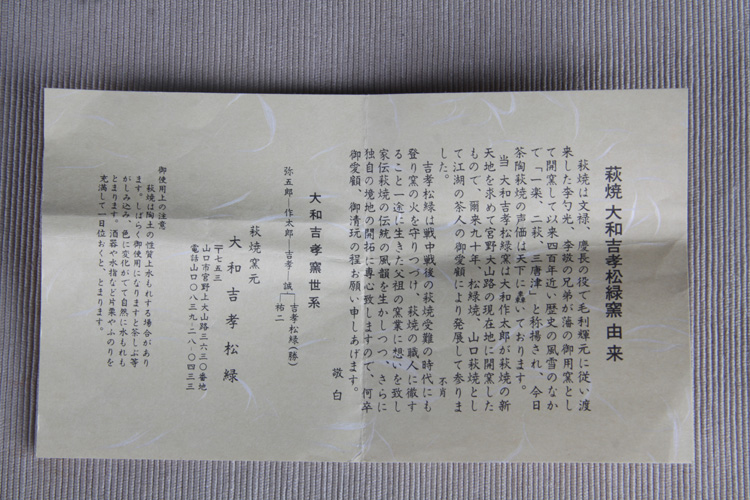 萩焼 大和吉孝松緑窯 由来
萩焼は文禄、慶長の役で毛利輝元に従い渡
来した李勺光、李敬の兄弟が藩の御用窯とし
て開窯して以来四百年近い歴史の風雪のなか
で「一楽、二萩、三唐津」と称揚され、今日
茶陶萩焼の声価は天下に轟いております。
当、大和吉孝松緑窯は大和作太郎が萩焼の新
天地を求めて宮野大山路の現在地に開窯した
もので、爾来九十年、松緑焼、山口萩焼とし
て江湖の茶人の御愛顧により発展して参りま
した。
不肖
吉孝松緑は戦中戦後の萩焼受難の時代にも
登り窯の火を守りつづけ、萩焼の職人に徹す
ること一途に生きた父祖の窯業に想いを致し
家伝萩焼の伝統の風韻を生かしつつ、さらに
独自の境地の開拓に専心致しますので、何卒
御愛顧、御清玩の程お願い申しあげます。
敬白
大和吉孝窯世系
弥五郎―作太郎―吉孝―誠―吉孝松緑(勝)
祐二
萩焼窯元
大和吉孝松緑
〒七五三
山口市宮野上大山路三六三〇番地
電話山口〇八三九-二八-〇四三三
御使用上の注意
萩焼は陶土の性質上水もれする場合があり
ます。しばらく御使用になりますと茶しぶ等
がしみ込み、色に変化がでて自然に水もれも
とまります。酒器や水指など片栗やふのりを
充満して一日位おくと、とまります。